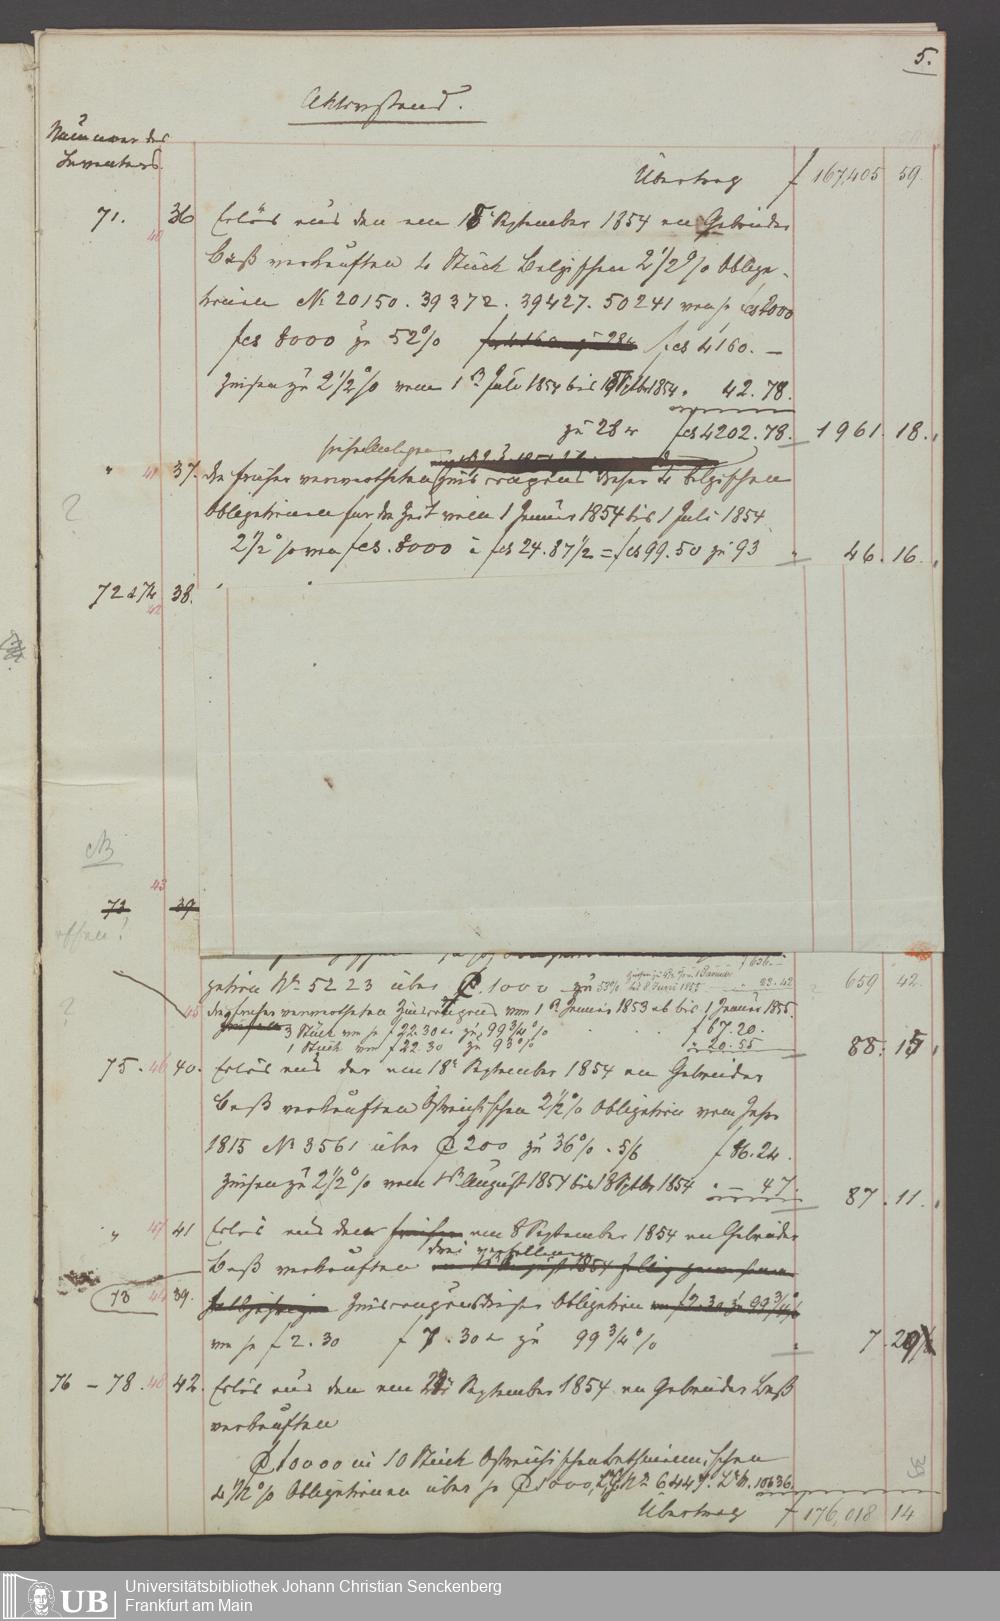 5.
Aktivstand.
Nummer des
Inventars.
Übertrag f 167,405 59.
71. 36 Erlös aus den am 18 September 1854 an Gebrüder
40
Baß verkauften 4 Stück Belgischen 2 1/2 % Obliga-
tionen No 20150. 39372. 39427. 50241 von je fcs 2000
fcs 8000 zu 52% fcs 4160. —
Zinsen zu 2 1/2 % vom 1n Juli 1854 bis 18 Sptbr 1854 " 42. 78.
zu 28 xr fcs 4202. 78. 1961. 18.
" 41 37. die früher verwertheten Zinscoupons dieser 4 belgischen
Obligationen für die Zeit vom 1 Januar 1854 bis 1 Juli 1854
2 1/2 % von fcs. 8000 à fcs 24. 87 1/2 = fcs 99. 50 zu 93 " 46. 16.
72 & 74 38.
42
NB
43
73 39
offen!
gation No 5223 über f. 1000 zu 53% bis 8 Juni 1855 23. 42 659 42.
45 die früher verwertheten Zinscoupons vom 1n Januar 1853 ab bis 1 Januar 1855.
3 Stück von je f 22. 30 xr zu 99 3/4 % f 67. 20.
1 Stück von f 22. 30 zu 93% " 20. 55 88. 15
75. 46 40. Erlös aus der am 18n September 1854 an Gebrüder
Baß verkauften Östreichischen 2 1/2 % Obligation vom Jahr
1815 No 3561 über f 200 zu 36% . 5/6 f 86. 24.
Zinsen zu 2 1/2 % vom 1n August 1854 bis 18 Sptbr 1854 " — 47. 87. 11.
" 47 41 Erlös aus den am 8 September 1854 an Gebrüder
drei verfallenen
Baß verkauften in 1n August 1854
73 44 39. Zinscoupons dieser Obligation von f 2. 30 zu 99 3/4 %
von je f 2. 30 f 7. 30 xr zu 99 3/4 % " 7. 29
76 – 78. 48 42. Erlös aus den am 28 September 1854 an Gebrüder Baß
verkauften
f 10000 in 10 Stück Östreichischen
4 1/2 % Obligationen über je f 1000, 6447. 10636.
39
Übertrag f 176,018 14
UB
Universitätsbibliothek Johann Christian Senckenberg
Frankfurt am Main